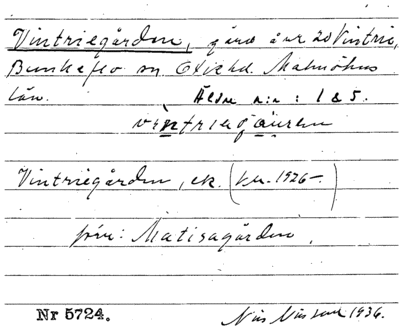 Vintriegården, gård å nr 20 Vintrie,
Bunkeflo sn Oxie hd. Malmöhus
län. Äldre n:r : 1 & 5.
Vintriegården, ek. (kbr. 1926–)
förr: Matisagården.
Nr 5724. Nils Nilsson 1936.